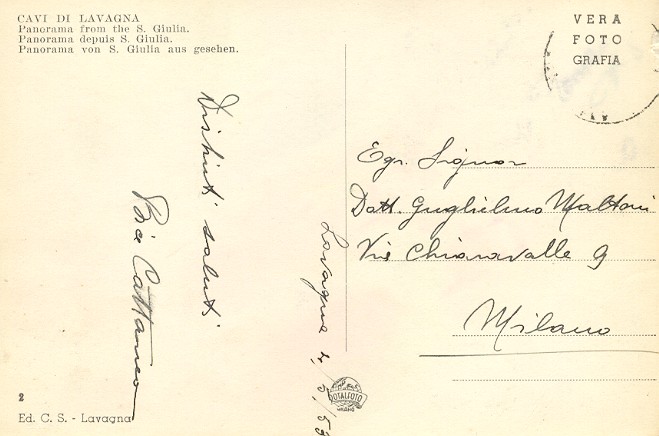 CAVI DI LAVAGNA
Panorama from the S. Giulia.
Panorama depuis S. Giulia.
Panorama von S. Giulia aus gesehen.
VERA
FOTO
GRAFIA
Distinti saluti
Cattaneo
Lavagna 4/5/53
Egr. Signor
Dott. Guglielmo Maltoni
Via Chiaravalle 9
Milano
DOTALFOTO
MILANO
2
Ed. C. S. - Lavagna